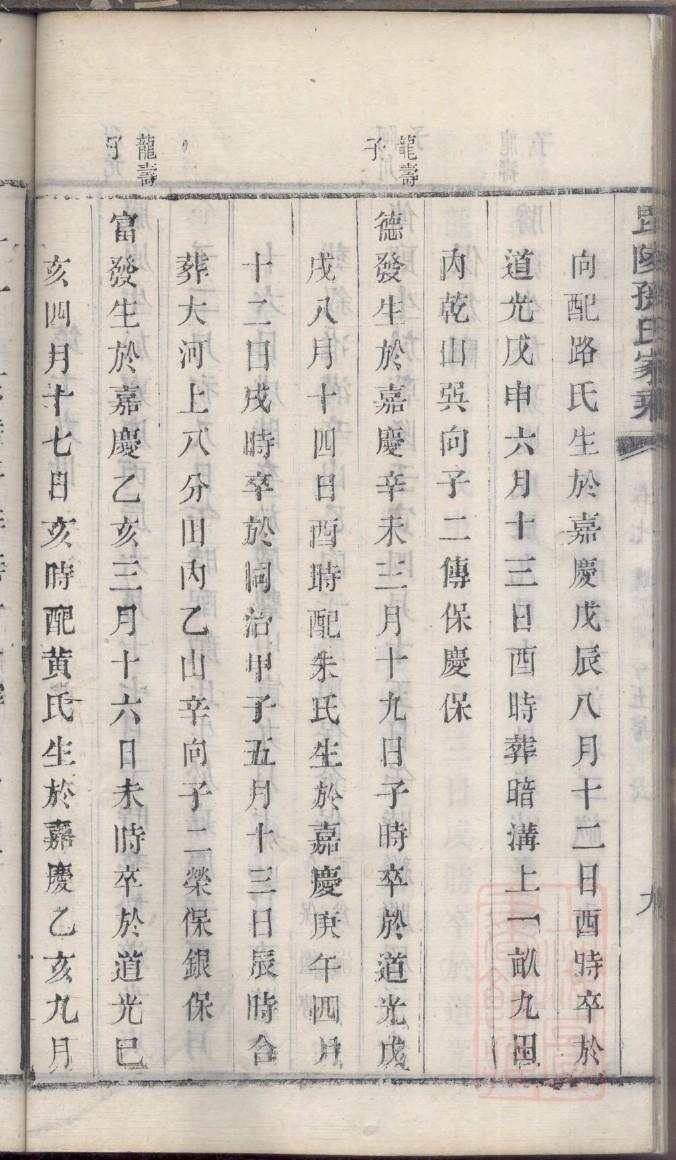 毘陵孫氏家乘
九
向配路氏生於嘉慶戊辰八月十二日酉時卒於
道光戊申六月十三日酉時葬暗溝上一畝九田
內乾山巽向子二傳保慶保
龍壽
子
德發生於嘉慶辛未三月十九日子時卒於道光戊
戌八月十四日酉時配朱氏生於嘉慶庚午四月
十二日戌時卒於同治甲子五月十三日辰時合
葬大河上八分田內乙山辛向子二榮保銀保
龍壽
子
富發生於嘉慶乙亥三月十六日未時卒於道光巳
亥四月十七日亥時配黃氏生於嘉慶乙亥九月